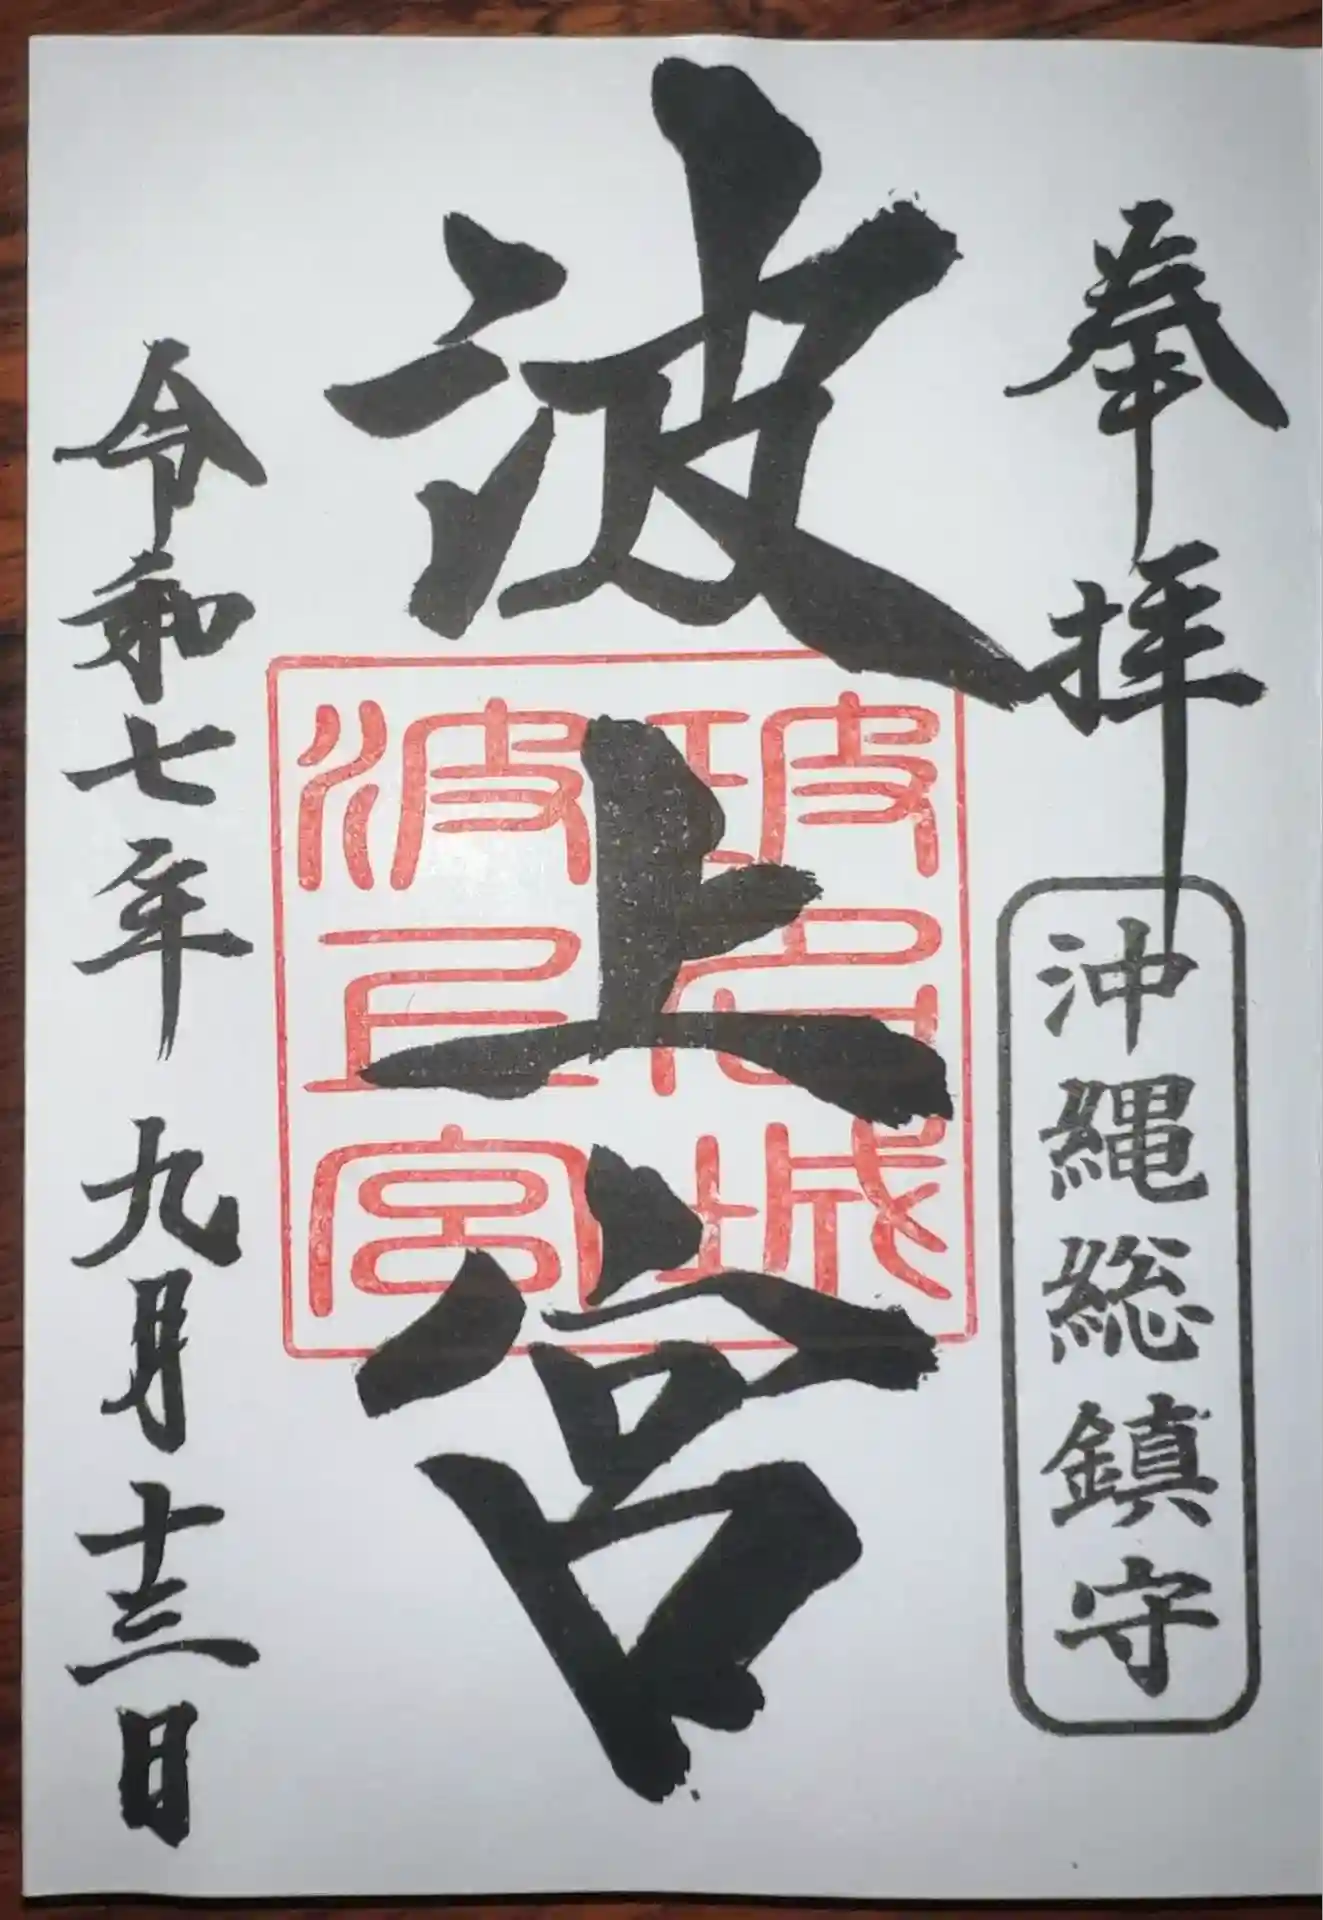 奉拝
沖縄総鎮守
波上宮
坡名城
波上宮
令和七年九月十三日